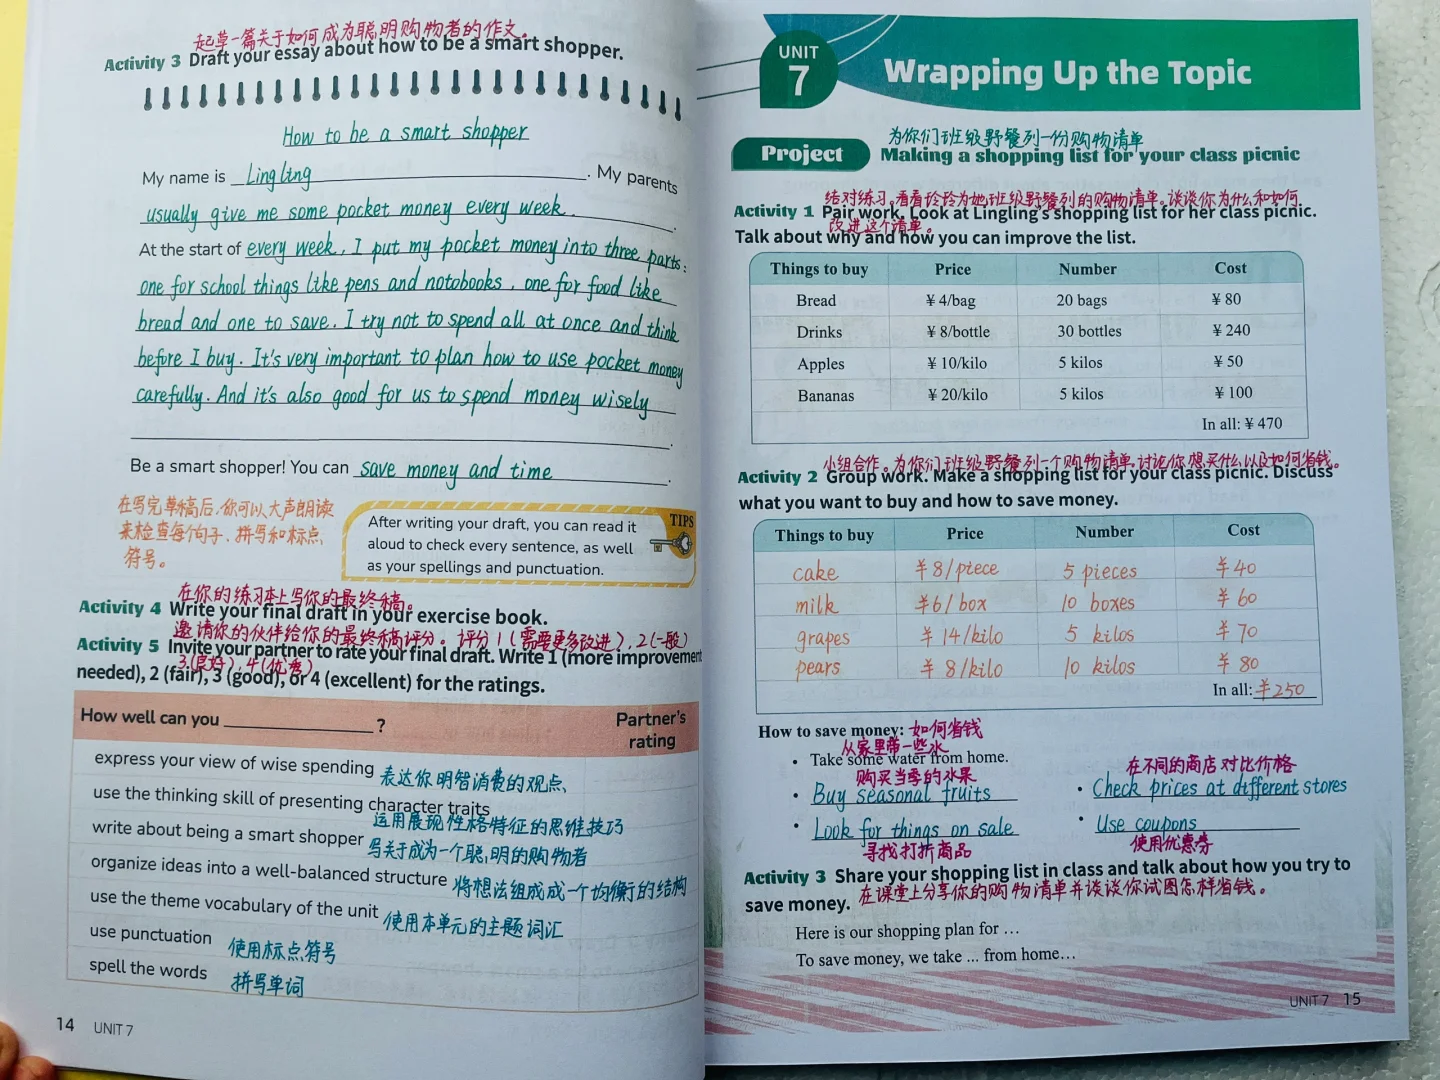 起草一篇关于如何成为聪明购物者的作文。
Activity 3 Draft your essay about how to be a smart shopper.
How to be a smart shopper
My name is Lingling. My parents
usually give me some pocket money every week.
At the start of every week, I put my pocket money into three parts:
one for school things like pens and notobooks, one for food like
bread and one to save. I try not to spend all at once and think
before I buy. It's very important to plan how to use pocket money
carefully. And it's also good for us to spend money wisely
.
Be a smart shopper! You can save money and time.
在写完草稿后,你可以大声朗读
来检查每个句子、拼写和标点
符号。
TIPS
After writing your draft, you can read it
aloud to check every sentence, as well
as your spellings and punctuation.
在你的练习本上写你的最终稿。
Activity 4 Write your final draft in your exercise book.
邀请你的伙伴给你的最终稿评分。评分1(需要更多改进),2(一般)
Activity 5 Invite your partner to rate your final draft. Write 1 (more improvement
3(良好),4(优秀)
needed), 2 (fair), 3 (good), or 4 (excellent) for the ratings.
How well can you ____________?
Partner's
rating
express your view of wise spending 表达你明智消费的观点、
use the thinking skill of presenting character traits
运用展现性格特征的思维技巧
write about being a smart shopper 写关于成为一个聪明的购物者
organize ideas into a well-balanced structure 将想法组成成一个均衡的结构
use the theme vocabulary of the unit 使用本单元的主题词汇
use punctuation 使用标点符号
spell the words 拼写单词
14 UNIT 7
UNIT
7
Wrapping Up the Topic
为你们班级野餐列一份购物清单
Project Making a shopping list for your class picnic
结对练习,看看玲玲为她班级野餐列的购物清单。谈谈你为什么和如何
Activity 1 Pair work. Look at Lingling's shopping list for her class picnic.
改进这个清单。
Talk about why and how you can improve the list.
Things to buy Price Number Cost
Bread ¥ 4/bag 20 bags ¥ 80
Drinks ¥ 8/bottle 30 bottles ¥ 240
Apples ¥ 10/kilo 5 kilos ¥ 50
Bananas ¥ 20/kilo 5 kilos ¥ 100
In all: ¥ 470
小组合作。为你们班级野餐列一个购物清单。讨论你想买什么以及如何省钱。
Activity 2 Group work. Make a shopping list for your class picnic. Discuss
what you want to buy and how to save money.
Things to buy Price Number Cost
cake ¥ 8/piece 5 pieces ¥ 40
milk ¥6/ box 10 boxes ¥ 60
grapes ¥ 14/kilo 5 kilos ¥ 70
pears ¥ 8/kilo 10 kilos ¥ 80
In all: ¥250
How to save money: 如何省钱
从家里带一些水
• Take some water from home.
购买当季的水果
• Buy seasonal fruits
• Look for things on sale
寻找打折商品
在不同的商店对比价格
• Check prices at different stores
• Use coupons
使用优惠券
Activity 3 Share your shopping list in class and talk about how you try to
save money. 在课堂上分享你的购物清单并谈谈你试图怎样省钱。
Here is our shopping plan for …
To save money, we take ... from home…
UNIT 7 15